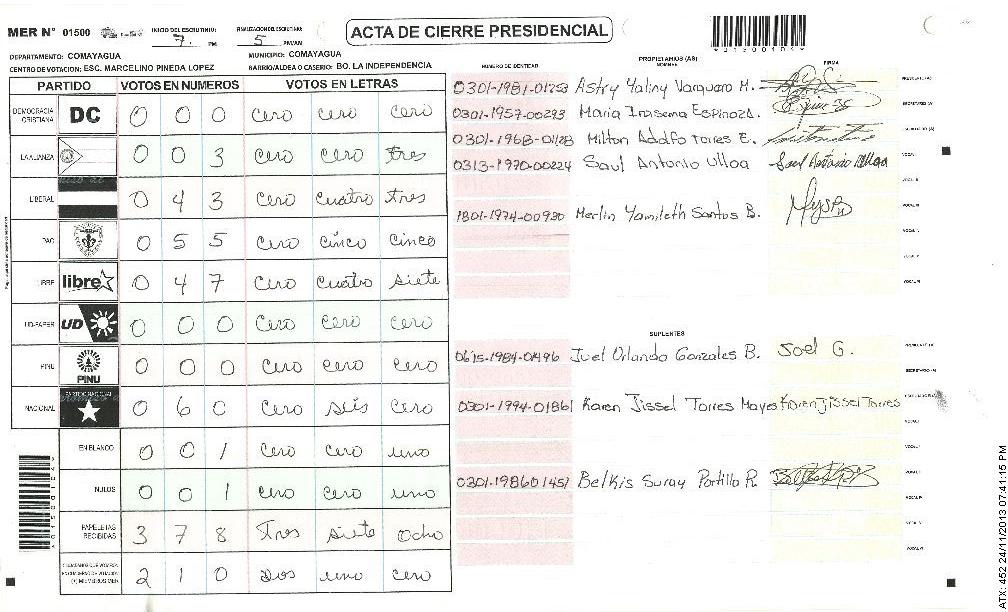 MER N° 01500
INICIO DEL ESCRUTINIO: 7. PM
FINALIZACION DEL ESCRUTINIO: 5 PM/AM
ACTA DE CIERRE PRESIDENCIAL
DEPARTAMENTO: COMAYAGUA
MUNICIPIO: COMAYAGUA
CENTRO DE VOTACION: ESC. MARCELINO PINEDA LOPEZ
BARRIO/ALDEA O CASERIO: BO. LA INDEPENDENCIA
PARTIDO VOTOS EN NUMEROS VOTOS EN LETRAS
DEMOCRACIA CRISTIANA DC 0 0 0 cero cero cero
LA ALIANZA 0 0 3 cero cero tres
LIBERAL 0 4 3 cero cuatro tres
PAC 0 5 5 cero cinco cinco
LIBRE libre 0 4 7 cero cuatro siete
UD-FAPER UD 0 0 0 cero cero cero
PINU PINU 0 0 0 cero cero cero
NACIONAL 0 6 0 cero seis cero
EN BLANCO 0 0 1 cero cero uno
NULOS 0 0 1 cero cero uno
PAPELETAS RECIBIDAS 3 7 8 Tres siete ocho
CIUDADANOS QUE VOTARON EN CUADERNO DE VOTACION (+) MIEMBROS MER 2 1 0 Dos uno cero
NUMERO DE IDENTIDAD
PROPIETARIOS (AS)
NOMBRE
FIRMA
0301-1981-01253 Astry Yaliny Vasquero M.
0301-1957-00293 Maria Irasema Espinoza.
0301-1968-01128 Milton Adolfo Torres E.
0313-1970-00224 Saul Antonio Ulloa Saul Antonio Ulloa
1801-1974-00930 Merlin Yamileth Santos B.
SUPLENTES
0615-1984-01496 Juel Orlando Gonzales B. Joel G.
0301-1994-01861 Karen Jissel Torres Mayes Karen Jissel Torres
0301-1986 01451 Belkis Suray Portillo R.
ATX: 452 24/11/2013 07:41:15 PM